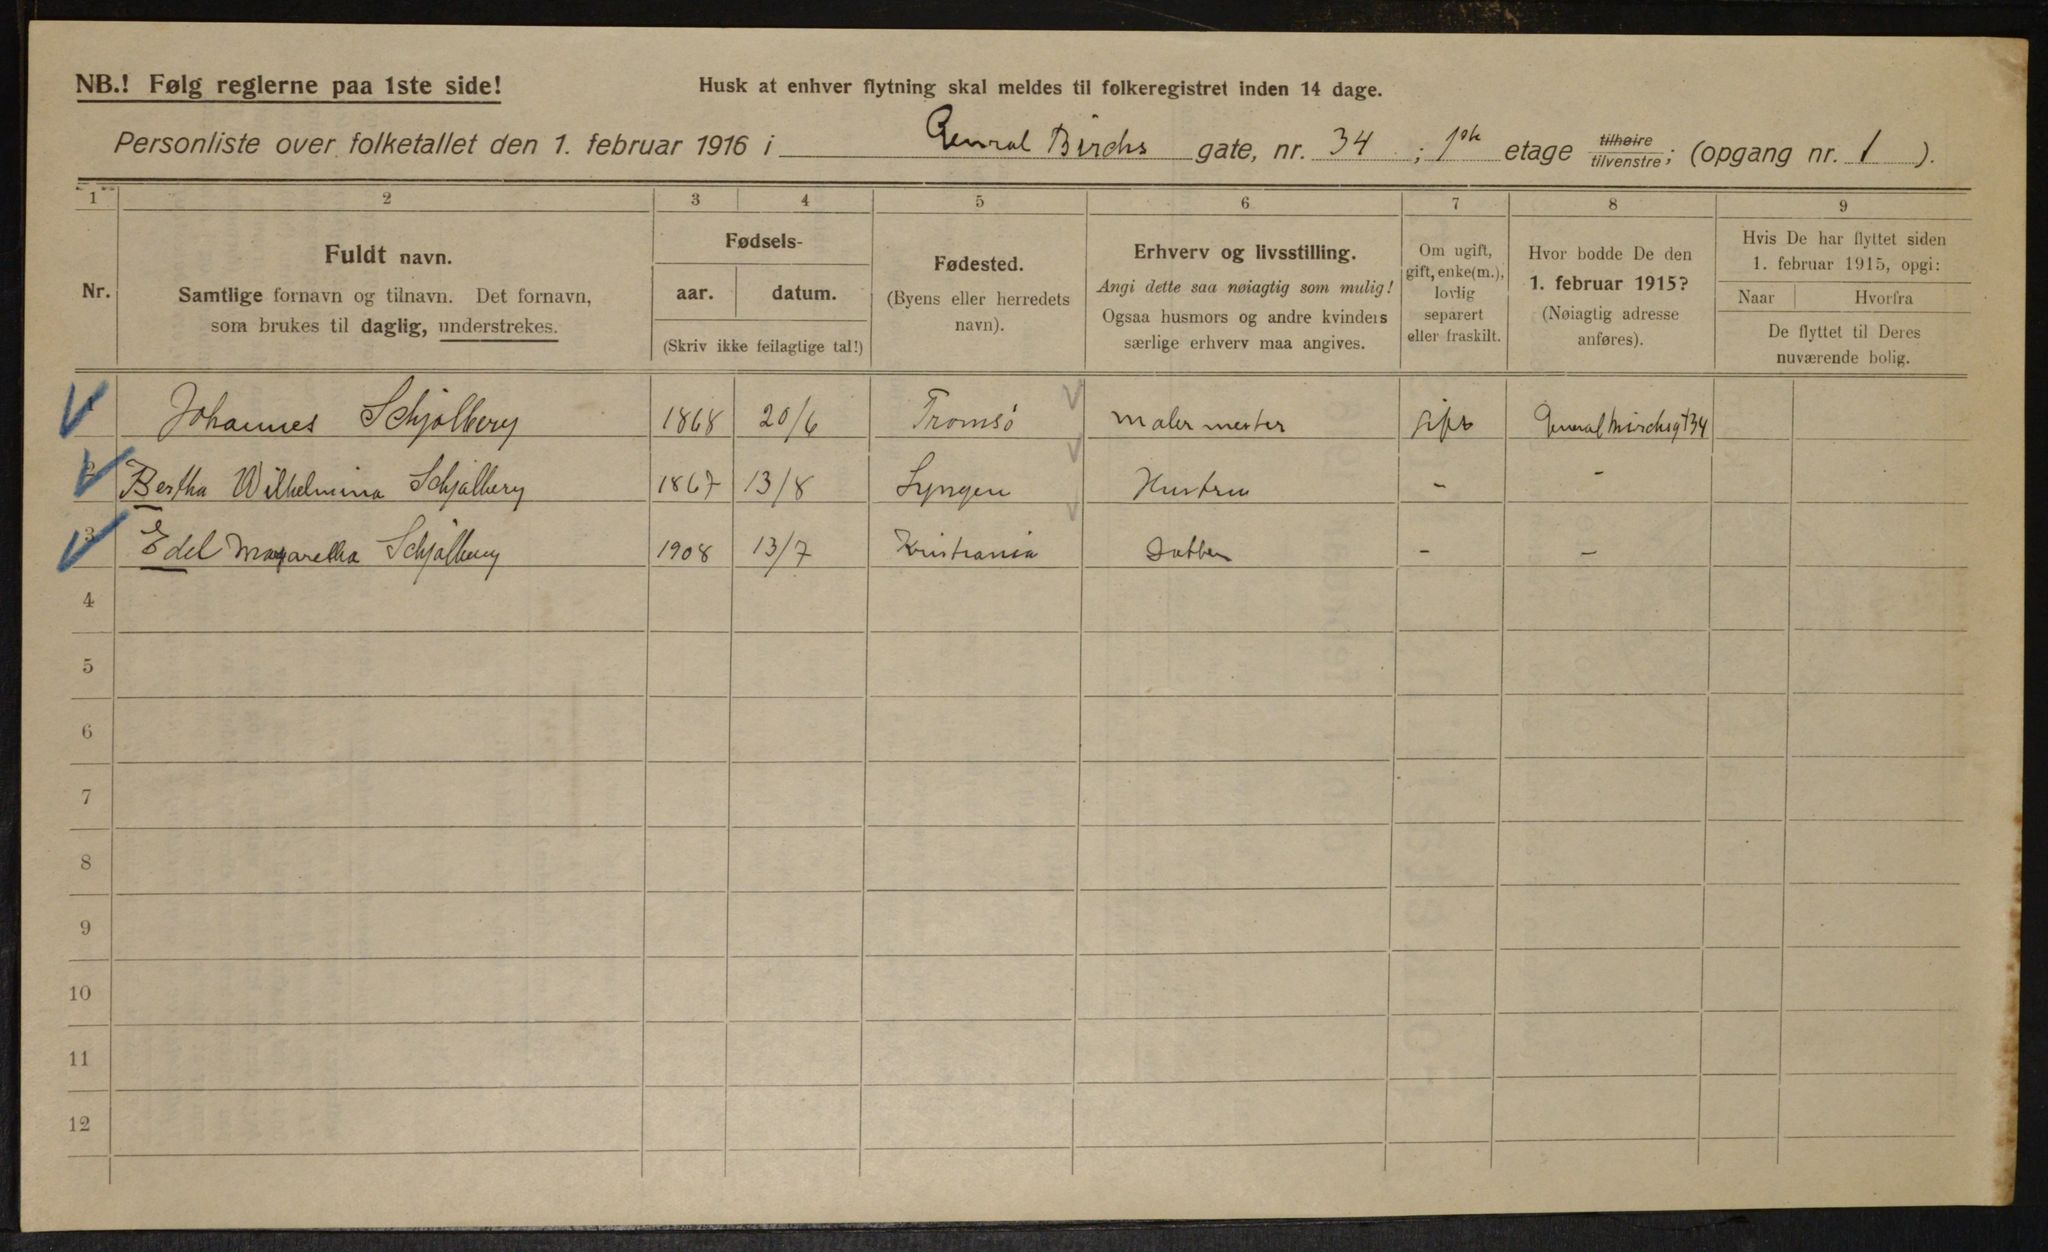 NB.! Følg reglerne paa 1ste side!
Husk at enhver flytning skal meldes til folkeregistret inden 14 dage.
Personliste over folketallet den 1. februar 1916 i General Birchs gate, nr. 34 ; 1ste etage tilhøire/tilvenstre; (opgang nr. 1 ).
1 2 3 4 5 6 7 8 9
Nr.
Fuldt navn.
Samtlige fornavn og tilnavn. Det fornavn,
som brukes til daglig, understrekes.
Fødsels-
aar. datum.
(Skriv ikke feilagtige tal!)
Fødested.
(Byens eller herredets
navn).
Erhverv og livsstilling.
Angi dette saa nøiagtig som mulig!
Ogsaa husmors og andre kvinders
særlige erhverv maa angives.
Om ugift,
gift, enke(m.),
lovlig
separert
eller fraskilt.
Hvor bodde De den
1. februar 1915?
(Nøiagtig adresse
anføres).
Hvis De har flyttet siden
1. februar 1915, opgi:
Naar Hvorfra
De flyttet til Deres
nuværende bolig.
1 Johannes Schjølberg 1868 20/6 Tromsø Malermester gift General Birchsgt 34
2 Bertha Wilhelmina Schjølberg 1867 13/8 Lyngen Hustru - -
3 Edel Margaretha Schjølberg 1908 13/7 Kristiania Datter - -
4
5
6
7
8
9
10
11
12